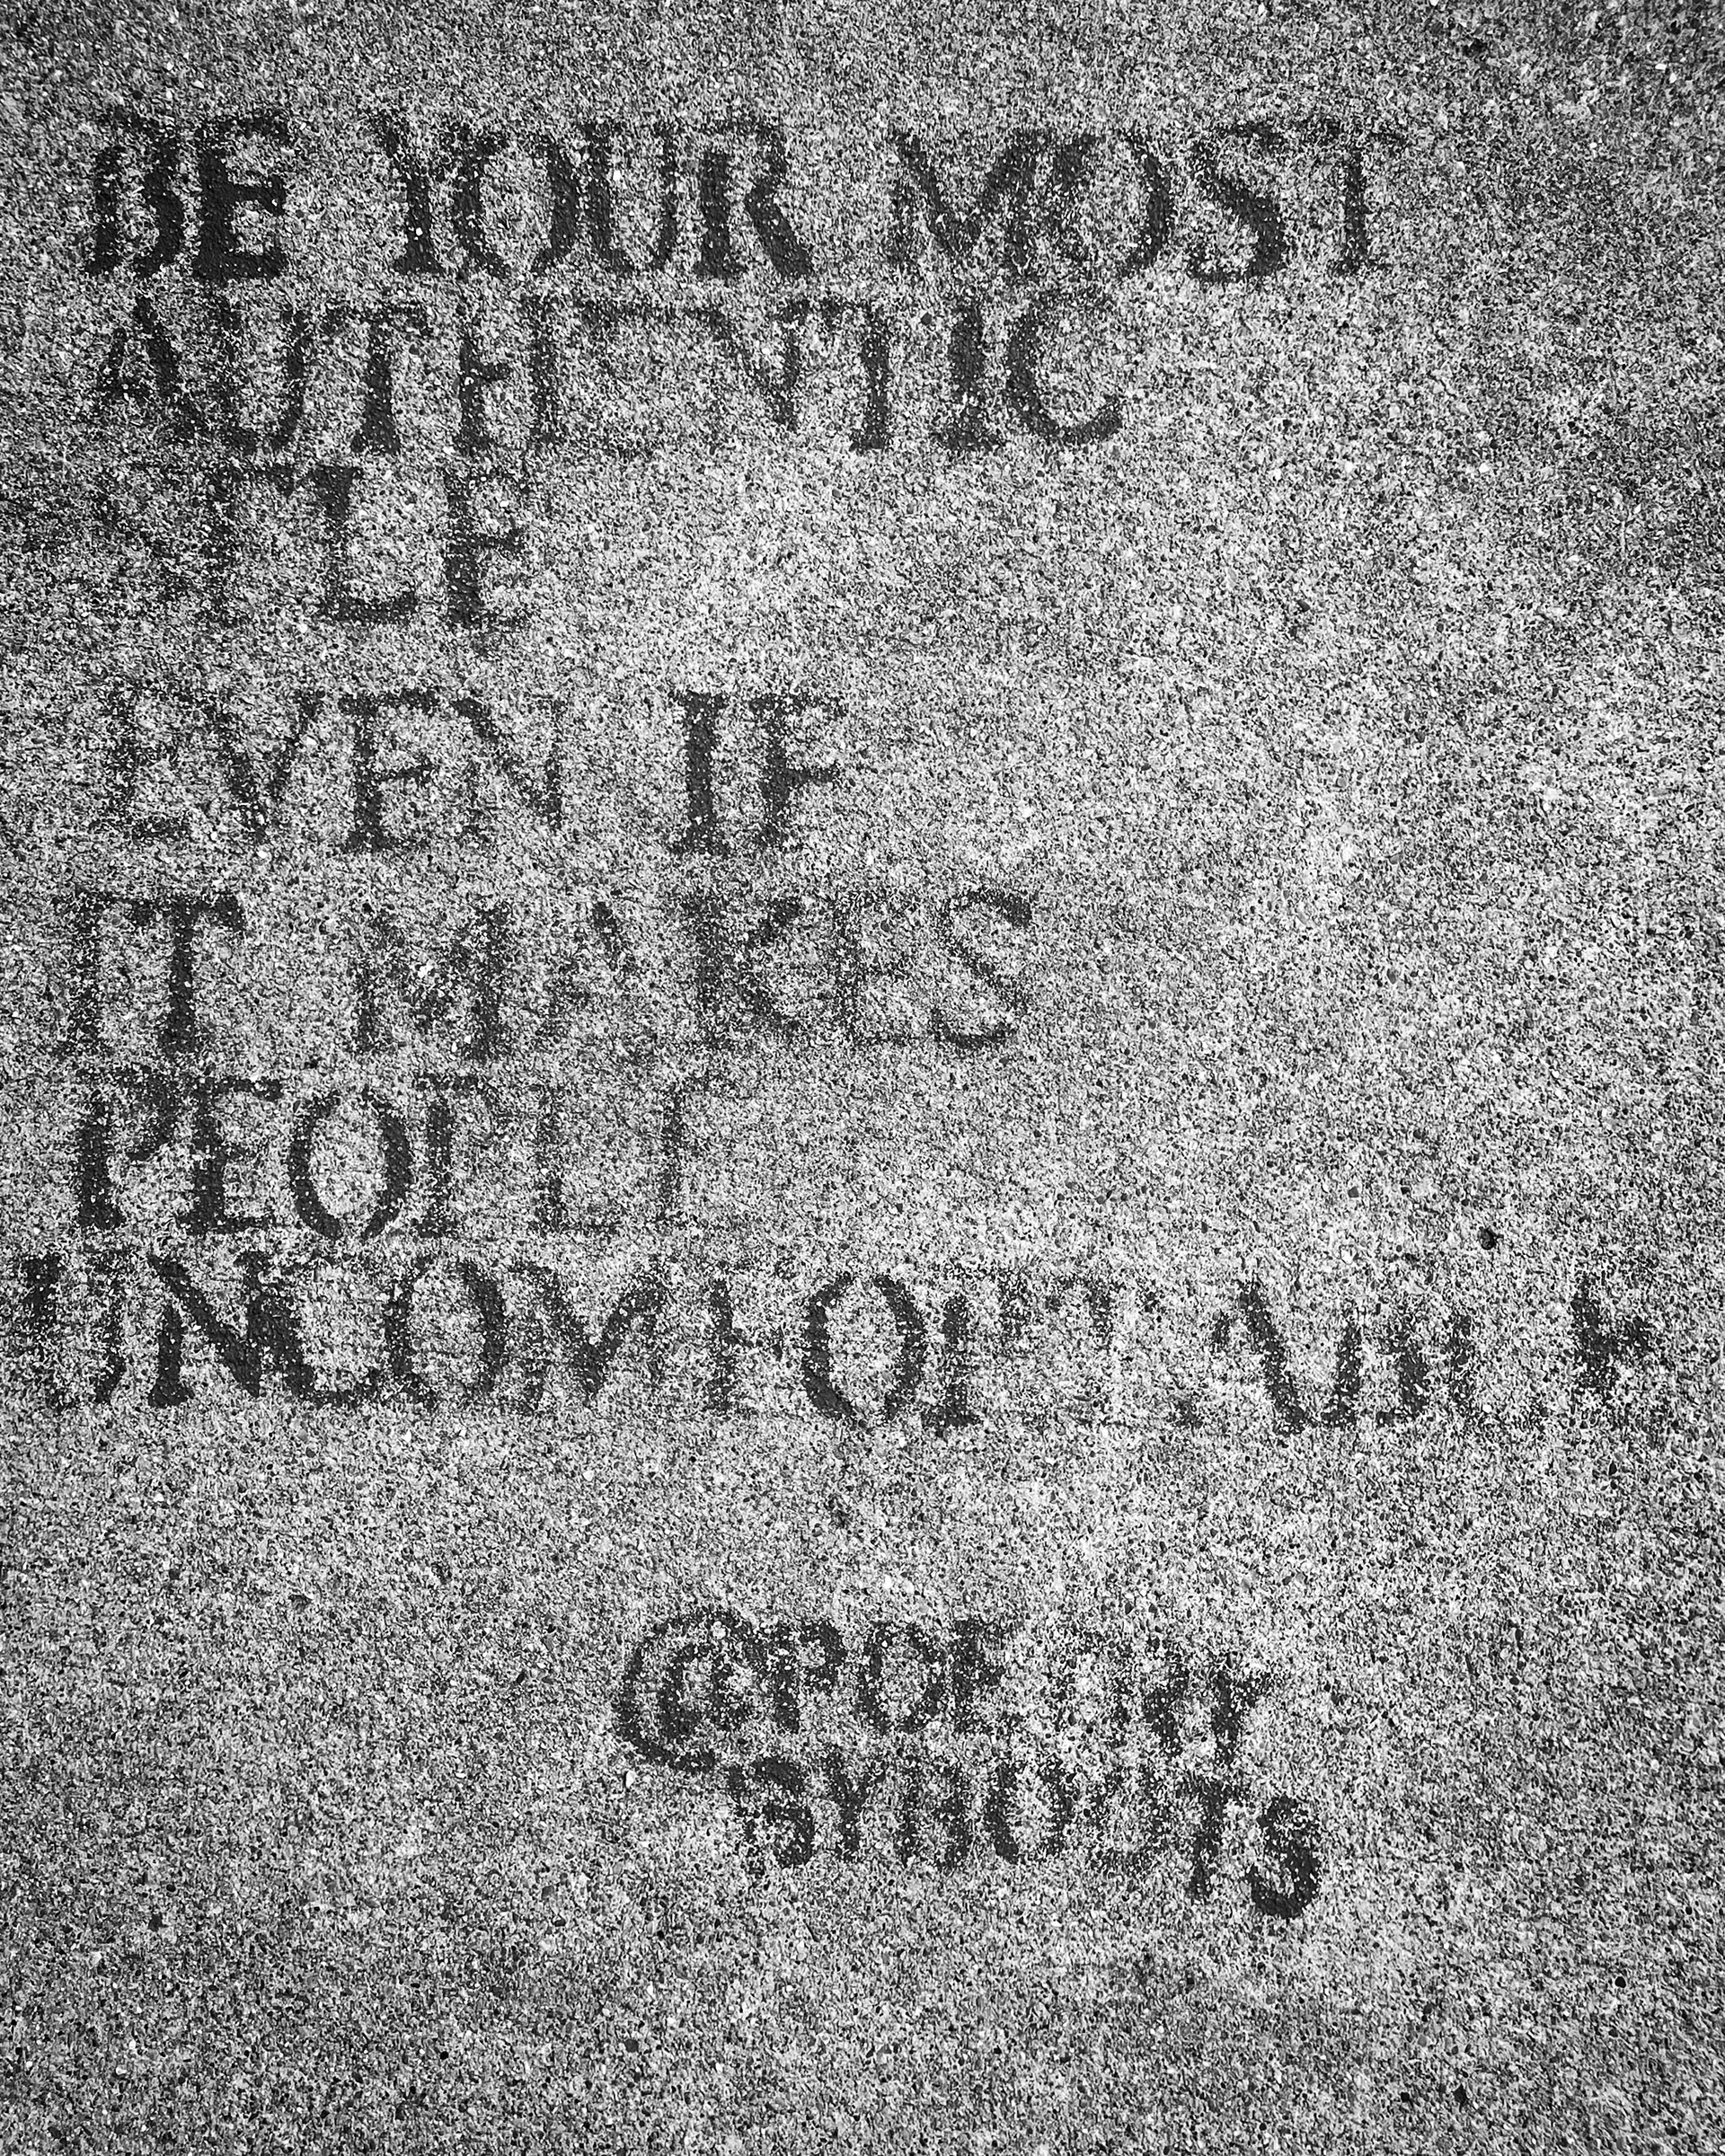 BE YOUR MOST
AUTHENTIC
SELF
EVEN IF
IT MAKES
PEOPLE
UNCOMFORTABLE